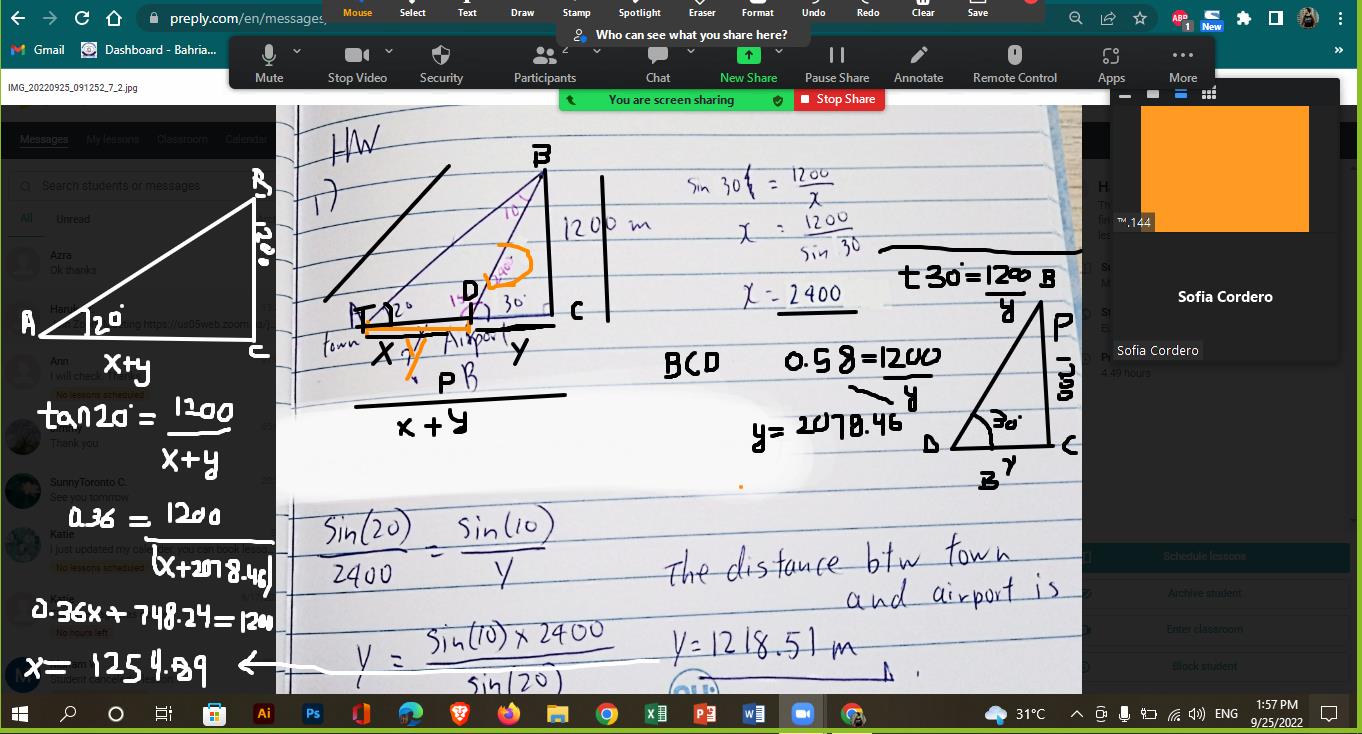 Mouse Select Text Draw Stamp Spotlight Eraser Format Undo Redo Clear Save
preply.com/en/messages
ABP 1 New
Who can see what you share here?
Gmail Dashboard - Bahria...
»
2
Mute Stop Video Security Participants Chat New Share Pause Share Annotate Remote Control Apps More
IMG_20220925_091252_7_2.jpg
You are screen sharing Stop Share
Messages My lessons Classroom Calendar
Search students or messages
All Unread
Azra
Ok thanks
Ann
No lessons scheduled
Thank you
SunnyToronto C.
See you tomrrow
Katie
No lessons scheduled
No hours left
™.144
Sofia Cordero
Sofia Cordero
4.49 hours
Schedule lessons
Archive student
Enter classroom
Block student
HW
1)
B
10
1200 m
D
20
30°
C
town
Airport
X
Y
y
P B
x + y
sin 30 = 1200
x
x = 1200
sin 30
x = 2400
t30° = 1200
y
B
P
1200
30°
D C
Y
B
BCD 0.58 = 1200
y
y = 2078.46
B
1200
A 20°
C
x+y
tan20° = 1200
x+y
0.36 = 1200
(x+2078.46)
0.36x + 748.24 = 1200
x = 1254.89
Sin(20) = Sin(10)
2400 Y
Y = Sin(10) x 2400
sin(20)
The distance btw town
and airport is
Y = 1218.51 m
31°C ENG 1:57 PM
9/25/2022